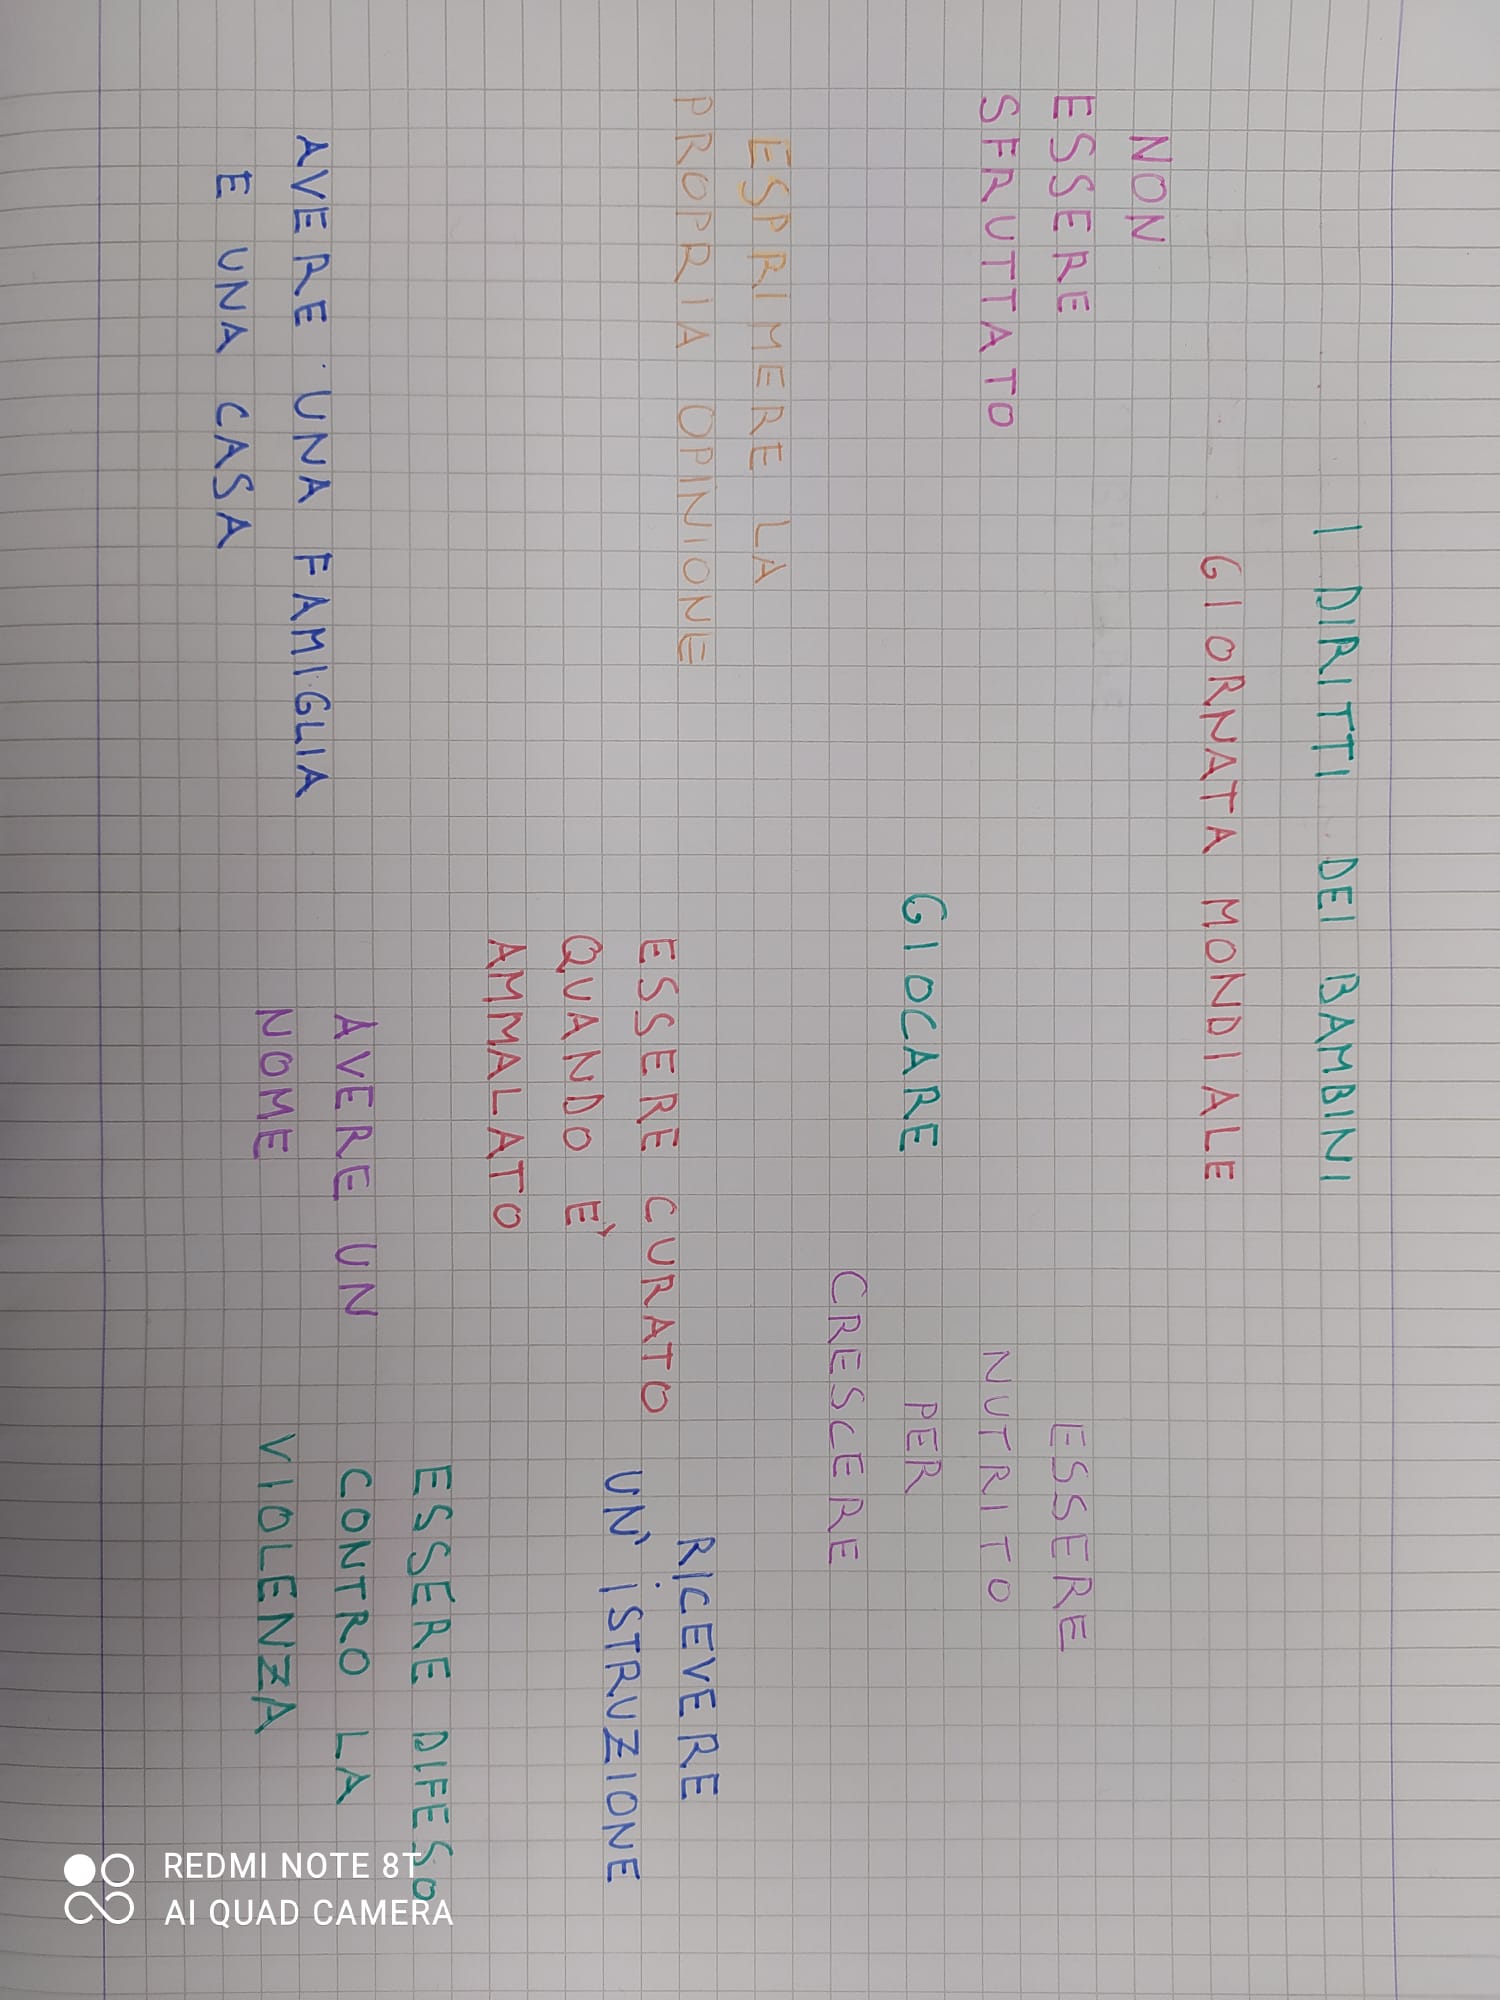 I DIRITTI DEI BAMBINI
GIORNATA MONDIALE
NON
ESSERE
SFRUTTATO
GIOCARE
ESSERE
NUTRITO
PER
CRESCERE
ESPRIMERE LA
PROPRIA OPINIONE
ESSERE CURATO
QUANDO È
AMMALATO
RICEVERE
UN' ISTRUZIONE
AVERE UNA FAMIGLIA
E UNA CASA
AVERE UN
NOME
ESSERE DIFESO
CONTRO LA
VIOLENZA
REDMI NOTE 8T
AI QUAD CAMERA